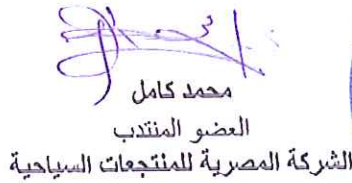 محمد كامل
العضو المنتدب
الشركة المصرية للمنتجعات السياحية